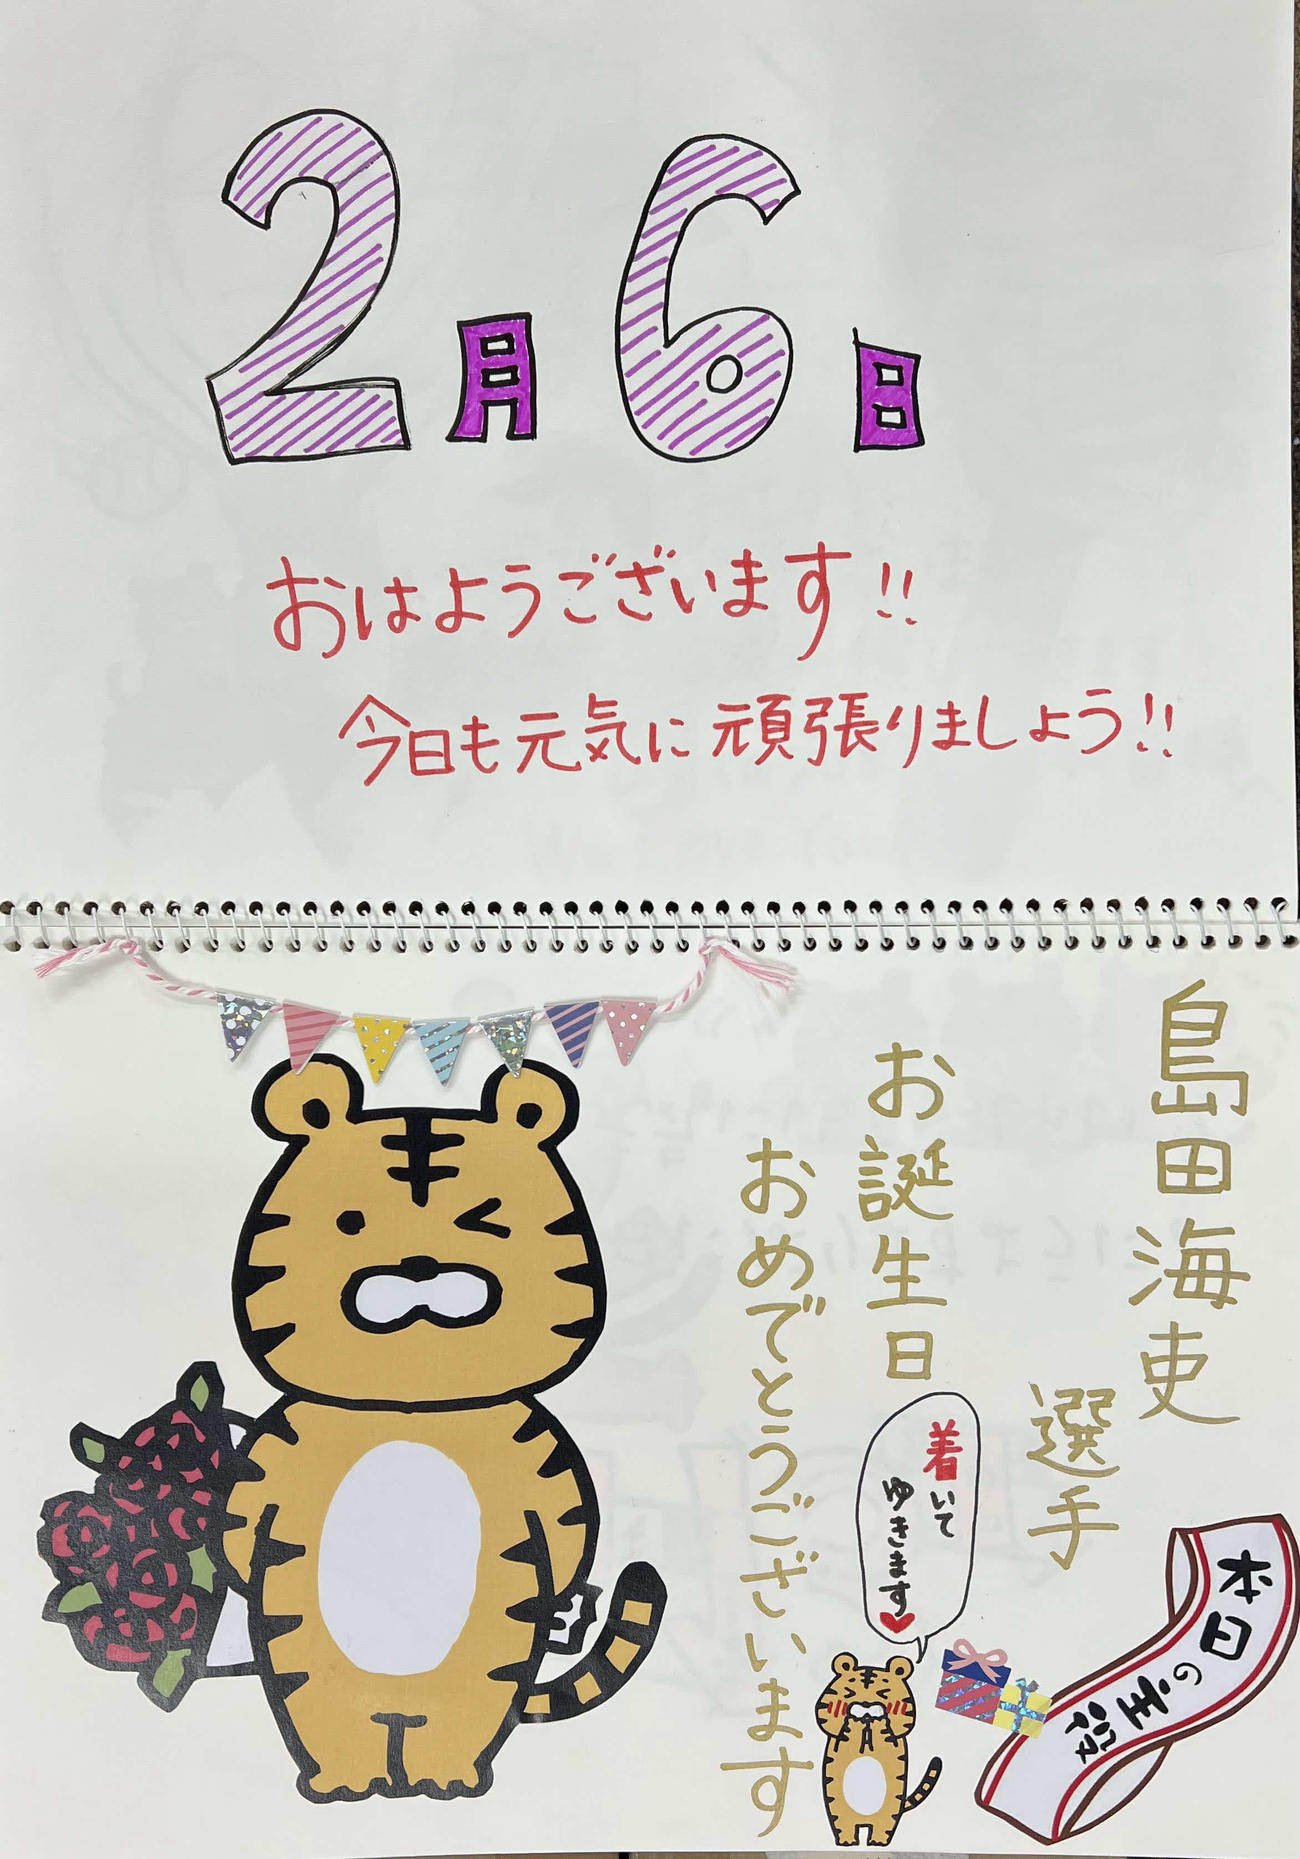 2月6日
おはようございます!!
今日も元気に頑張りましょう!!
島田海吏
選手
お誕生日
おめでとうございます
着いて
ゆきます
本日の主役